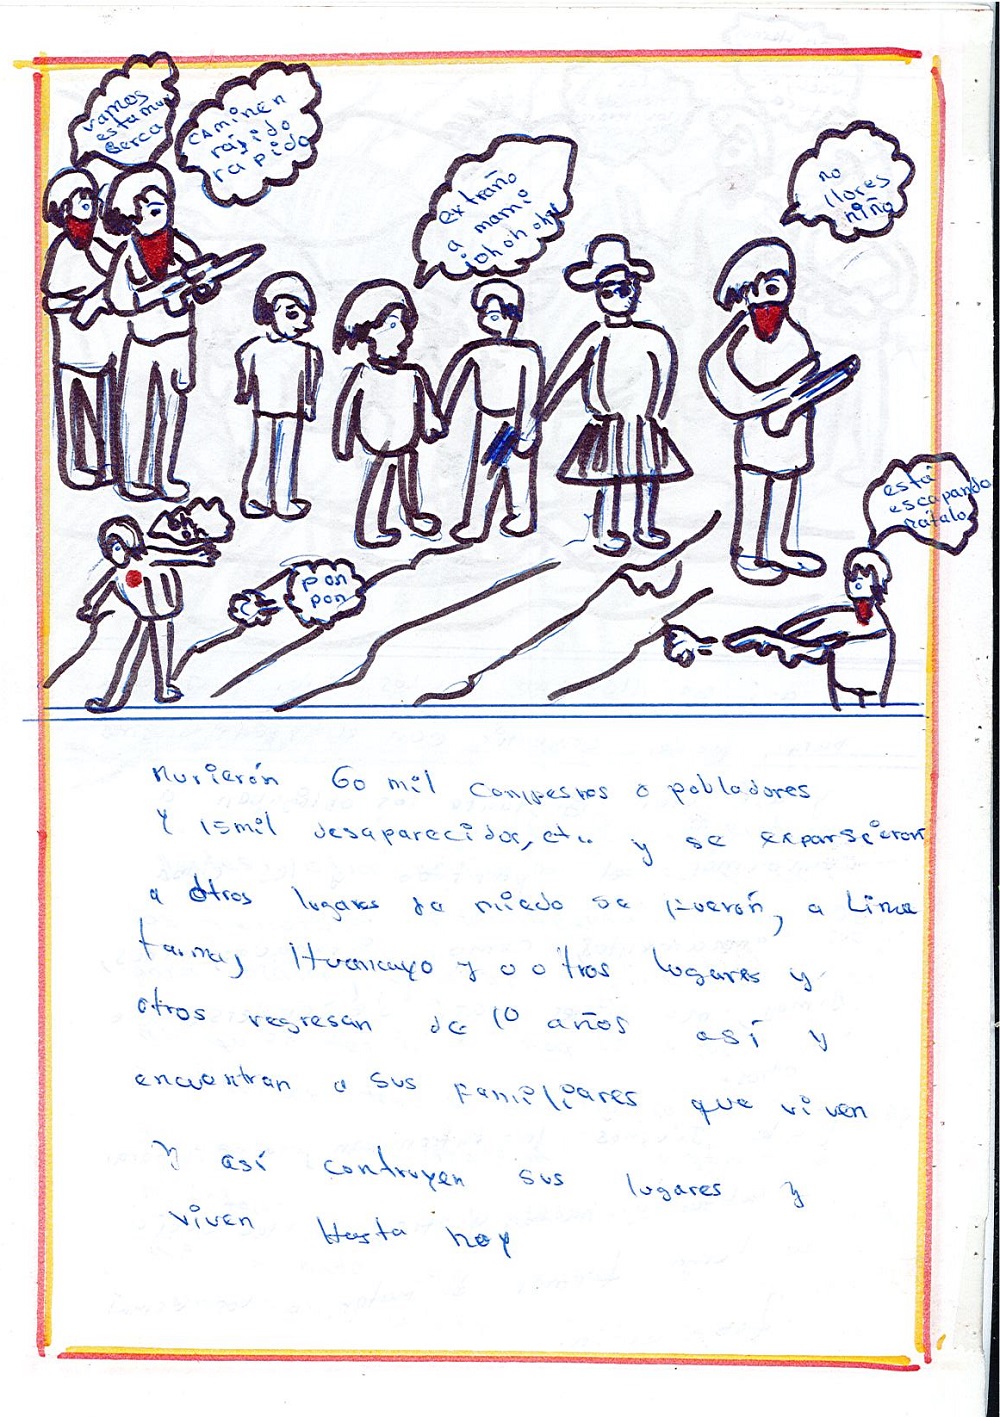 vamos
esta muy
serca
CAminen
rápido
rapido
extraño
a mami
¡oh oh oh!
no
llores
niño
está
escapando
mátalo
pon
pon
Murierón 60 mil campesnos o pobladores
Y 15mil desaparecidos, etc. y se exparsieron
a otros lugares de miedo se fuerón, a Lima
tarma, Huancayo y o otros lugares y
otros regresan de 10 años así y
encuentran a sus familiares que viven
Y así contruyen sus lugares y
viven Hasta hoy